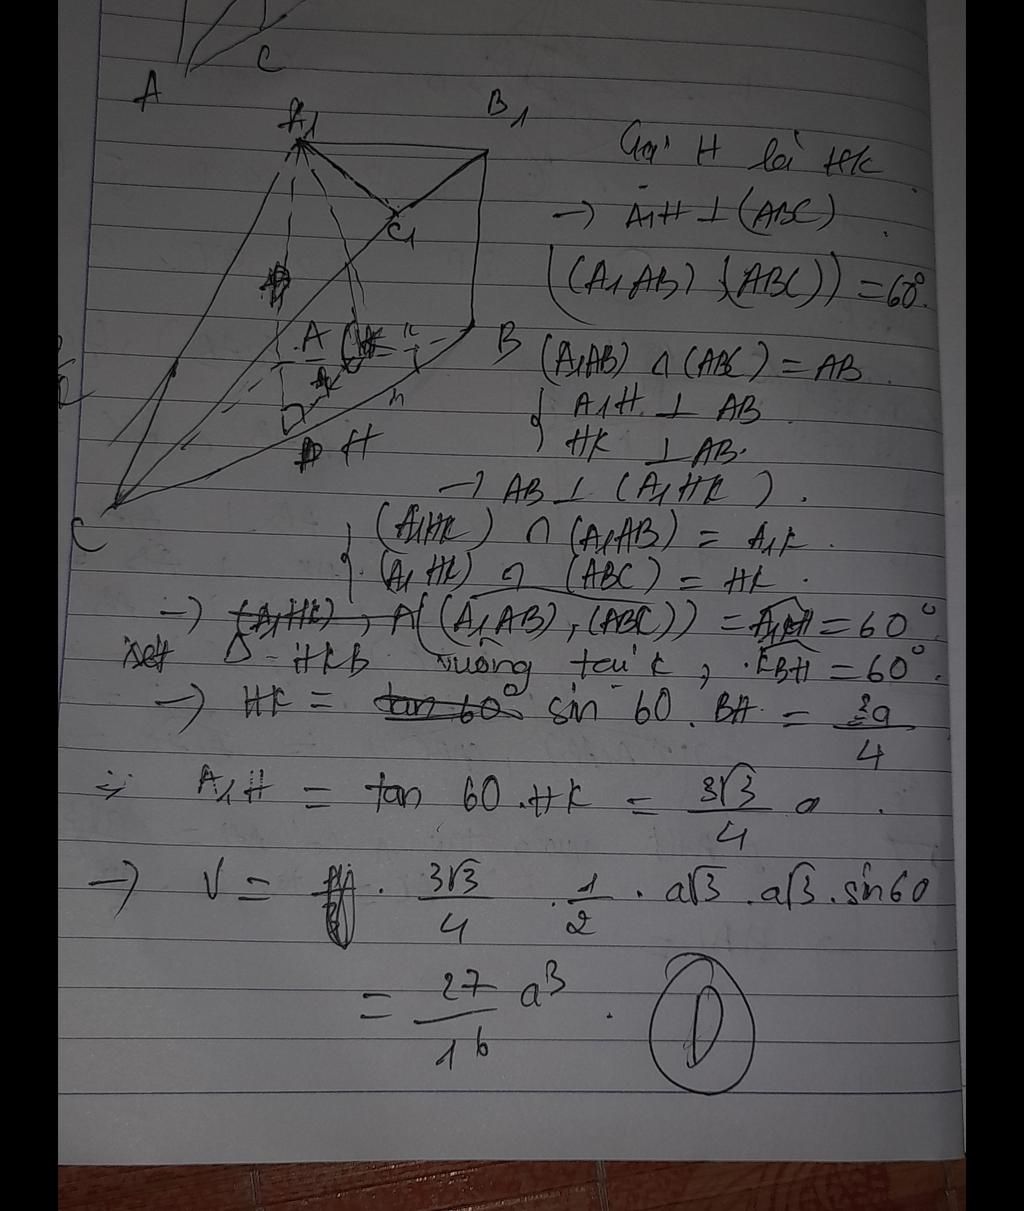 A
C
A₁
B₁
C₁
A
K
B
H
C
Gọi H là HK
→ A₁H ⊥ (ABC)
((A₁AB), (ABC)) = 60°
(A₁AB) ∩ (ABC) = AB
{ A₁H ⊥ AB
HK ⊥ AB.
→ AB ⊥ (A₁HK).
{ (A₁HK) ∩ (A₁AB) = A₁K.
(A₁HK) ∩ (ABC) = HK.
→ ((A₁AB), (ABC)) = A₁KH = 60°
xét Δ HKB vuông tại K, KBH = 60°.
→ HK = sin 60. BH = 3a/4
A₁H = tan 60. HK = 3√3/4 a.
→ V = 3√3/4 . 1/2 . a√3 . a√3 . sin 60
= 27/16 a³.
D